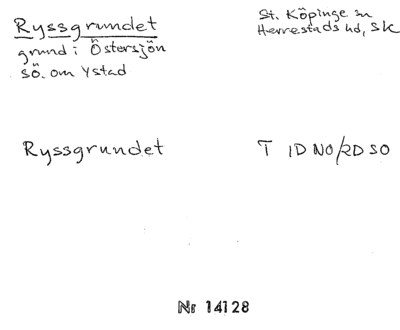 Ryssgrundet
grund i Östersjön
sö. om Ystad
St. Köpinge sn
Herrestads hd, Sk
Ryssgrundet
T 1D NO/2D SO
Nr 14128